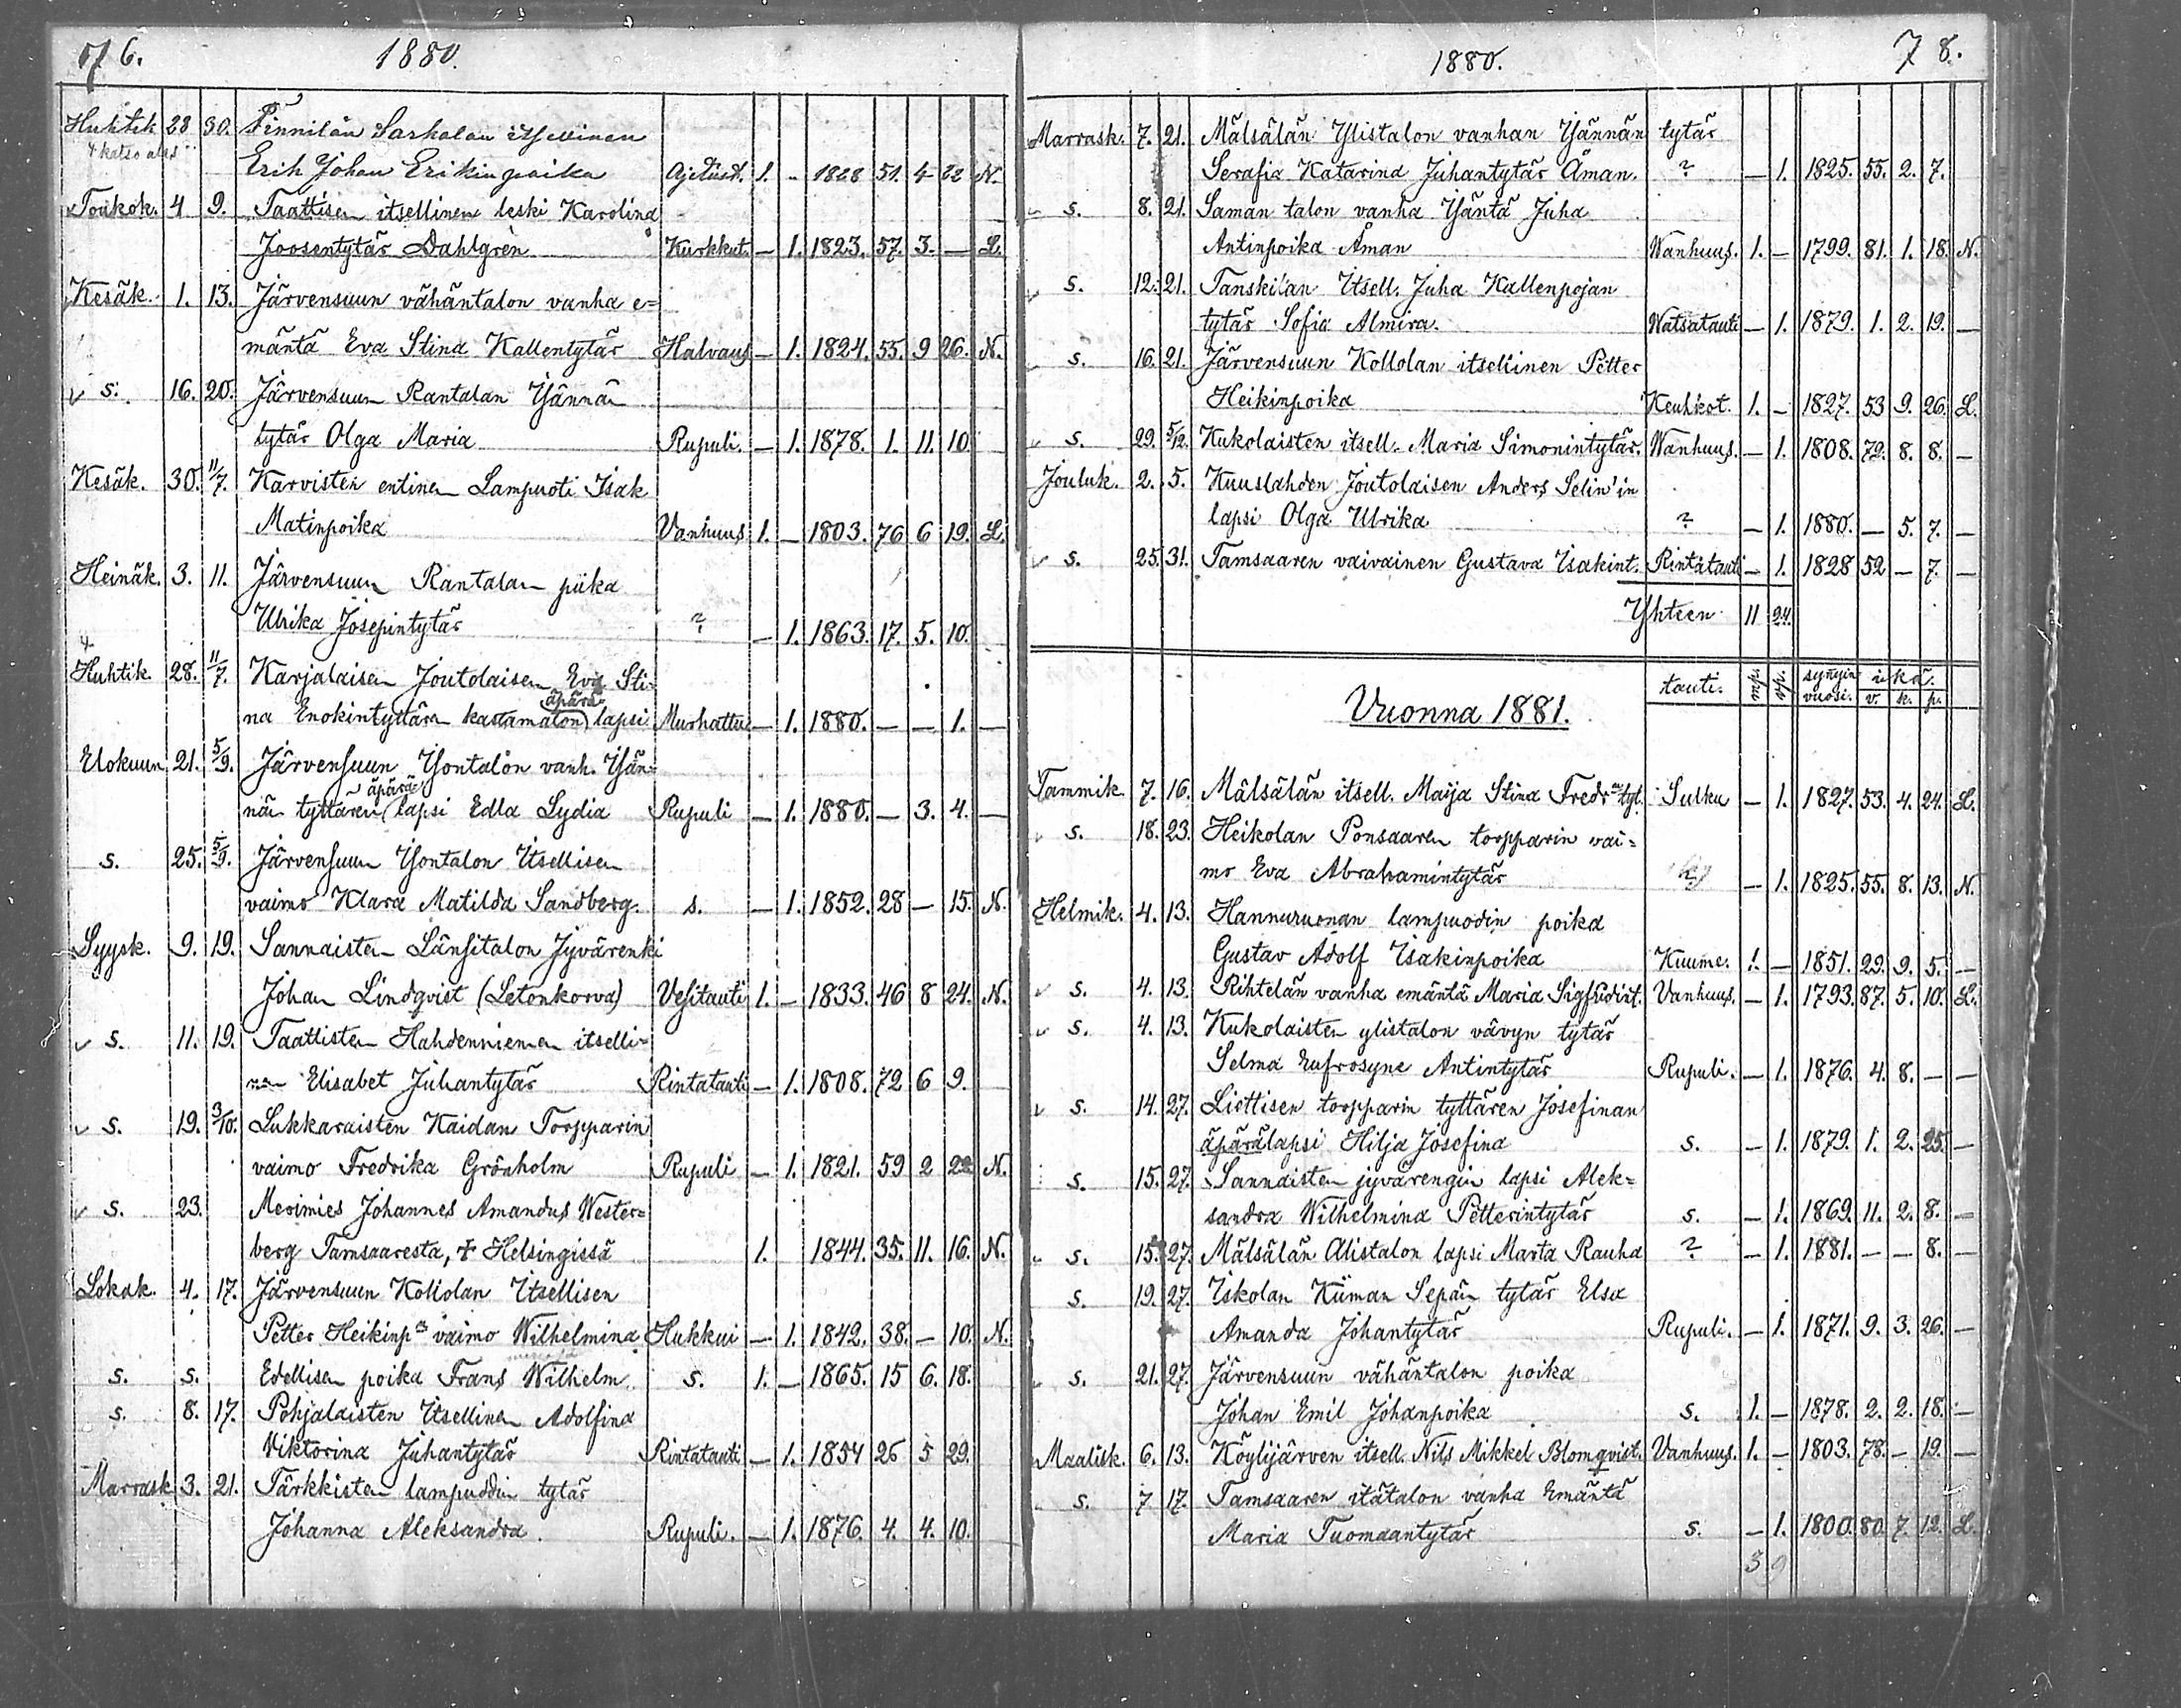 76.
1880.
Huhtik. 28 30. Finnilän Sarkalan itsellinen
4 katso alas
Erik Johan Erikinpoika Ajetust. 1. - 1828 51. 4 22 N.
Toukok. 4 9. Taattisen itsellinen leski Karolina
Joosentytär Dahlgrén Kurkkut. — 1. 1823. 57. 3. — L.
Kesäk. 1. 13. Järvensuun vähäntalon vanha e=
mäntä Eva Stina Kallentytär Halvaus — 1. 1824. 55. 9 26. N.
s. 16. 20. Järvensuun Rantalan Isännän
tytär Olga Maria Rupuli. — 1. 1878. 1. 11. 10.
Kesäk. 30. 11/7. Karvisten entinen Lampuoti Isak
Matinpoika Vanhuus 1. — 1803. 76 6 19. L.
Heinäk. 3. 11. Järvensuun Rantalan piika
Ulrika Josepintytär ? — 1. 1863. 17. 5. 10.
4
Huhtik. 28. 11/7. Karjalaisen Joutolaisen Eva Sti-
äpärä
na Enokintyttären kastamaton lapsi Murhattu — 1. 1880. — — 1. —
Elokuun 21. 5/9. Järvensuun Isontalon vanh. Isän=
äpärä
nän tyttären lapsi Edla Lydia Rupuli — 1. 1880. — 3. 4. —
s. 25. 5/9. Järvensuun Isontalon Itsellisen
vaimo Klara Matilda Sandberg. s. — 1. 1852. 28 — 15. N.
Syysk. 9. 19. Sannaisten Länsitalon Jyvärenki
Johan Lindqvist (Letonkorva) Vesitauti 1. — 1833. 46 8 24. N.
s. 11. 19. Taattisten Hahdenniemen itselli=
nen Elisabet Juhantytär Rintatauti — 1. 1808. 72 6 9.
s. 19. 3/10. Lukkaraisten Kaidan Torpparin
vaimo Fredrika Grönholm Rupuli — 1. 1821. 59 2 22 N.
s. 23. Merimies Johannes Amandus Wester=
berg Tamsaaresta, † Helsingissä 1. 1844. 35. 11. 16. N.
Lokak. 4. 17. Järvensuun Kollolan Itsellisen
Petter Heikinp. vaimo Wilhelmina Hukkui — 1. 1842. 38. — 10. N.
s. s. Edellisen poika Frans Wilhelm. s. 1. — 1865. 15 6. 18.
s. 8. 17. Pohjalaisten Itsellinen Adolfina
Viktorina Juhantytär Rintatauti — 1. 1854 26 5 29.
Marrask 3. 21. Tärkkisten lampuodin tytär
Johanna Aleksandra. Rupuli. — 1. 1876. 4. 4. 10.
1880.
78.
Marrask. 7. 21. Mälsälän Ylistalon vanhan Isännän tytär
Serafia Katarina Juhantytär Åman. ? — 1. 1825. 55. 2. 7.
s. 8. 21. Saman talon vanha Isäntä Juha
Antinpoika Åman Wanhuus. 1. — 1799. 81. 1. 18. N.
s. 12. 21. Tanskilan Itsell. Juha Kallenpojan
tytär Sofia Almira. Watsatauti — 1. 1879. 1. 2. 19. —
s. 16. 21. Järvensuun Kollolan itsellinen Petter
Heikinpoika Keuhkot. 1. — 1827. 53 9. 26. L.
s. 29. 5/12. Kukolaisten itsell. Maria Simonintytär. Wanhuus. — 1. 1808. 72. 8. 8. —
Jouluk. 2. 5. Kuuslahden Joutolaisen Anders Selin'in
lapsi Olga Ulrika ? — 1. 1880. — 5. 7. —
s. 25. 31. Tamsaaren vaivainen Gustava Isakint. Rintatauti — 1. 1828 52 — 7. —
Yhteen 11 24.
Vuonna 1881.
tauti. mp. vp. syntym vuosi. ikä. v. k. p.
Tammik. 7. 16. Mälsälän itsell. Maija Stina Fredr. tyt. Susku — 1. 1827. 53. 4. 24. L.
s. 18. 23. Heikolan Ponsaaren torpparin vai=
mo Eva Abrahamintytär — 1. 1825. 55. 8. 13. N.
Helmik. 4. 13. Hannurunnan lampuodin poika
Gustav Adolf Isakinpoika Kuume. 1. — 1851. 29. 9. 5. —
s. 4. 13. Rihtelän vanha emäntä Maria Sigfridint. Vanhuus. — 1. 1793. 87. 5. 10. L.
s. 4. 13. Kukolaisten ylistalon vävyn tytär
Selma Eufrosyne Antintytär Rupuli. — 1. 1876. 4. 8. — —
s. 14. 27. Liettisen torpparin tyttären Josefinan
äpärälapsi Hilja Josefina s. — 1. 1879. 1. 2. 25. —
s. 15. 27. Sannaisten jyvärengin lapsi Alek=
sandra Wilhelmina Petterintytär s. — 1. 1869. 11. 2. 8. —
s. 15. 27. Mälsälän Alistalon lapsi Marta Rauha ? — 1. 1881. — — 8. —
s. 19. 27. Iskolan Kiiman Sepän tytär Elsa
Amanda Johantytär Rupuli. — 1. 1871. 9. 3. 26. —
s. 21. 27. Järvensuun vähäntalon poika
Johan Emil Johanpoika s. 1. — 1878. 2. 2. 18. —
Maalisk. 6. 13. Köylijärven itsell. Nils Mikkel Blomqvist. Vanhuus. 1. — 1803. 78. — 19. —
s. 7 17. Tamsaaren itätalon vanha Emäntä
Maria Tuomaantytär s. — 1. 1800. 80. 7. 12. L.
3 9